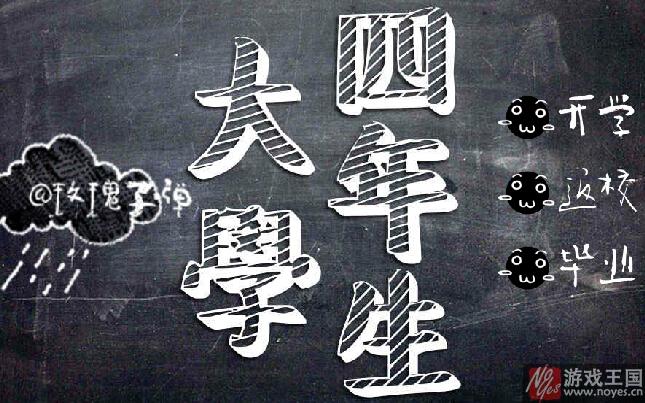 大學
四年生
开学
返校
毕业
@玫瑰子弹
No yes 游戏王国
www.noyes.cn